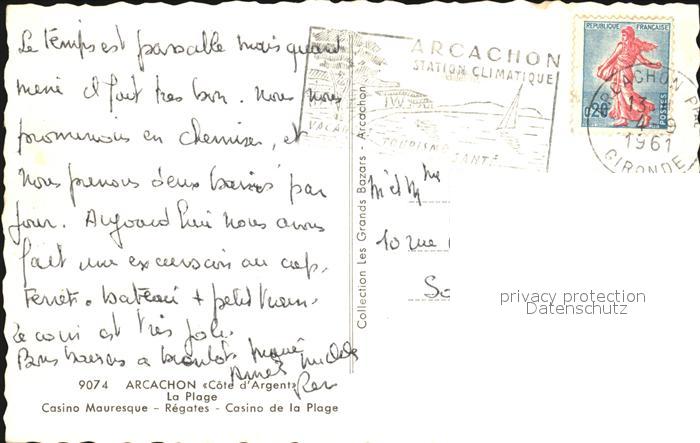 Le temps est passable mais quand
meme il fait tres bon. Nous nous
promenons en chemises, et
nous prenons deux bains par
jour. Aujourd'hui nous avons
fait une excursion au cap.
Ferret. bateau + petit train.
Le coin est très joli.
Bons baisers a bientôt.
9074 ARCACHON «Côte d'Argent»
La Plage
Casino Mauresque – Régates – Casino de la Plage
Collection Les Grands Bazars - Arcachon
ARCACHON
STATION CLIMATIQUE
VACAN
TOURISME SANTÉ
REPUBLIQUE FRANÇAISE
0,20
POSTES
ARCACHON
13-
4-9
1961
GIRONDE
M et Mme
10 rue
privacy protection
Datenschutz